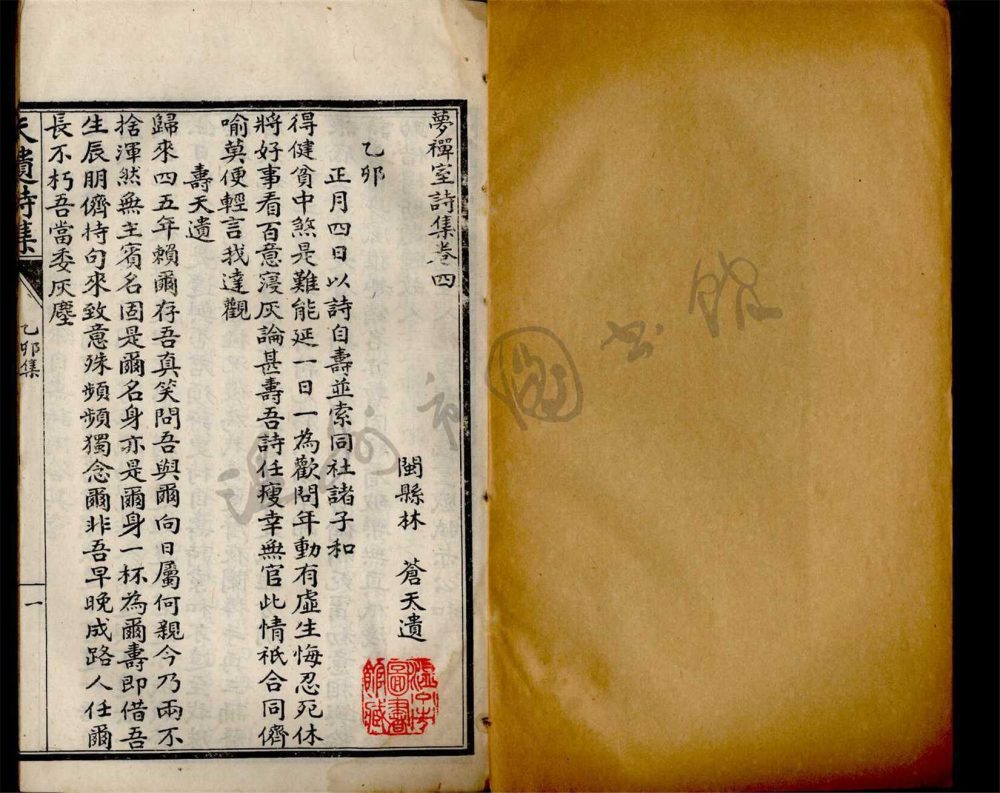 夢禪室詩集卷四
閩縣林 蒼天遺
乙卯
正月四日以詩自壽並索同社諸子和
得健貧中煞是難能延一日一為歡問年動有虛生悔忍死休
將好事看百意寢灰論甚壽吾詩任瘦幸無官此情祇合同儕
喻莫便輕言我達觀
壽天遺
歸來四五年賴爾存吾真笑問吾與爾向日屬何親今乃兩不
捨渾然無主賓名固是爾名身亦是爾身一杯為爾壽即借吾
生辰朋儕持句來致意殊頻頻獨念爾非吾早晚成路人任爾
長不朽吾當委灰塵
天遺詩集
乙卯集
一
溫州市圖書館藏
溫州市圖書館